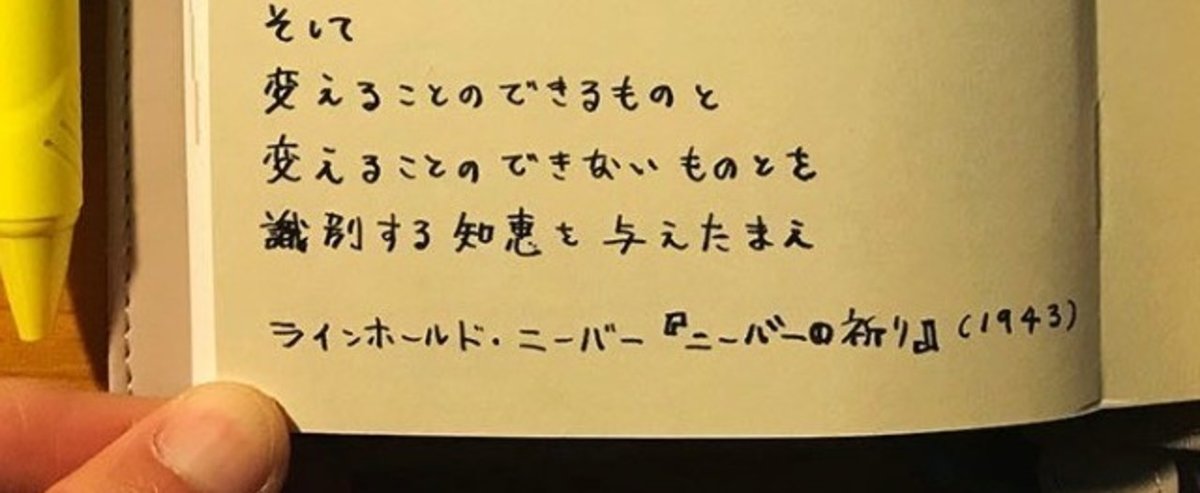 そして
変えることのできるものと
変えることのできないものとを
識別する知恵を与えたまえ
ラインホールド・ニーバー『ニーバーの祈り』(1943)